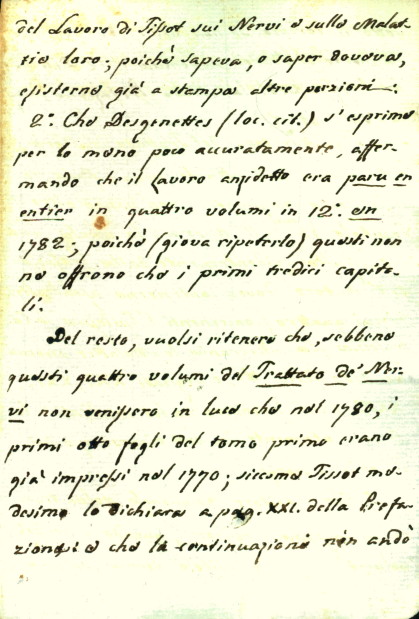 del Lavoro di Tissot sui Nervi o sulle Malat-
tie loro; poichè sapeva, o saper doveva,
esisterne già a stampa altre porzioni.
2.° Che Desgenettes (loc. cit.) s'esprime
per lo meno poco accuratamente, affer-
mando che il Lavoro anzidetto era paru en
entier in quattro volumi in 12.° en
1782; poichè (giova ripeterlo) questi non
ne offrono che i primi tredici capito-
li.
Del resto, vuolsi ritenere che, sebbene
questi quattro volumi del Trattato de' Ner-
vi non venissero in luce che nel 1780, i
primi otto fogli del tomo primo erano
già impressi nel 1770; siccome Tissot me-
desimo lo dichiara a pag. XXI. della Prefa-
zione; e che la continuazione non andò